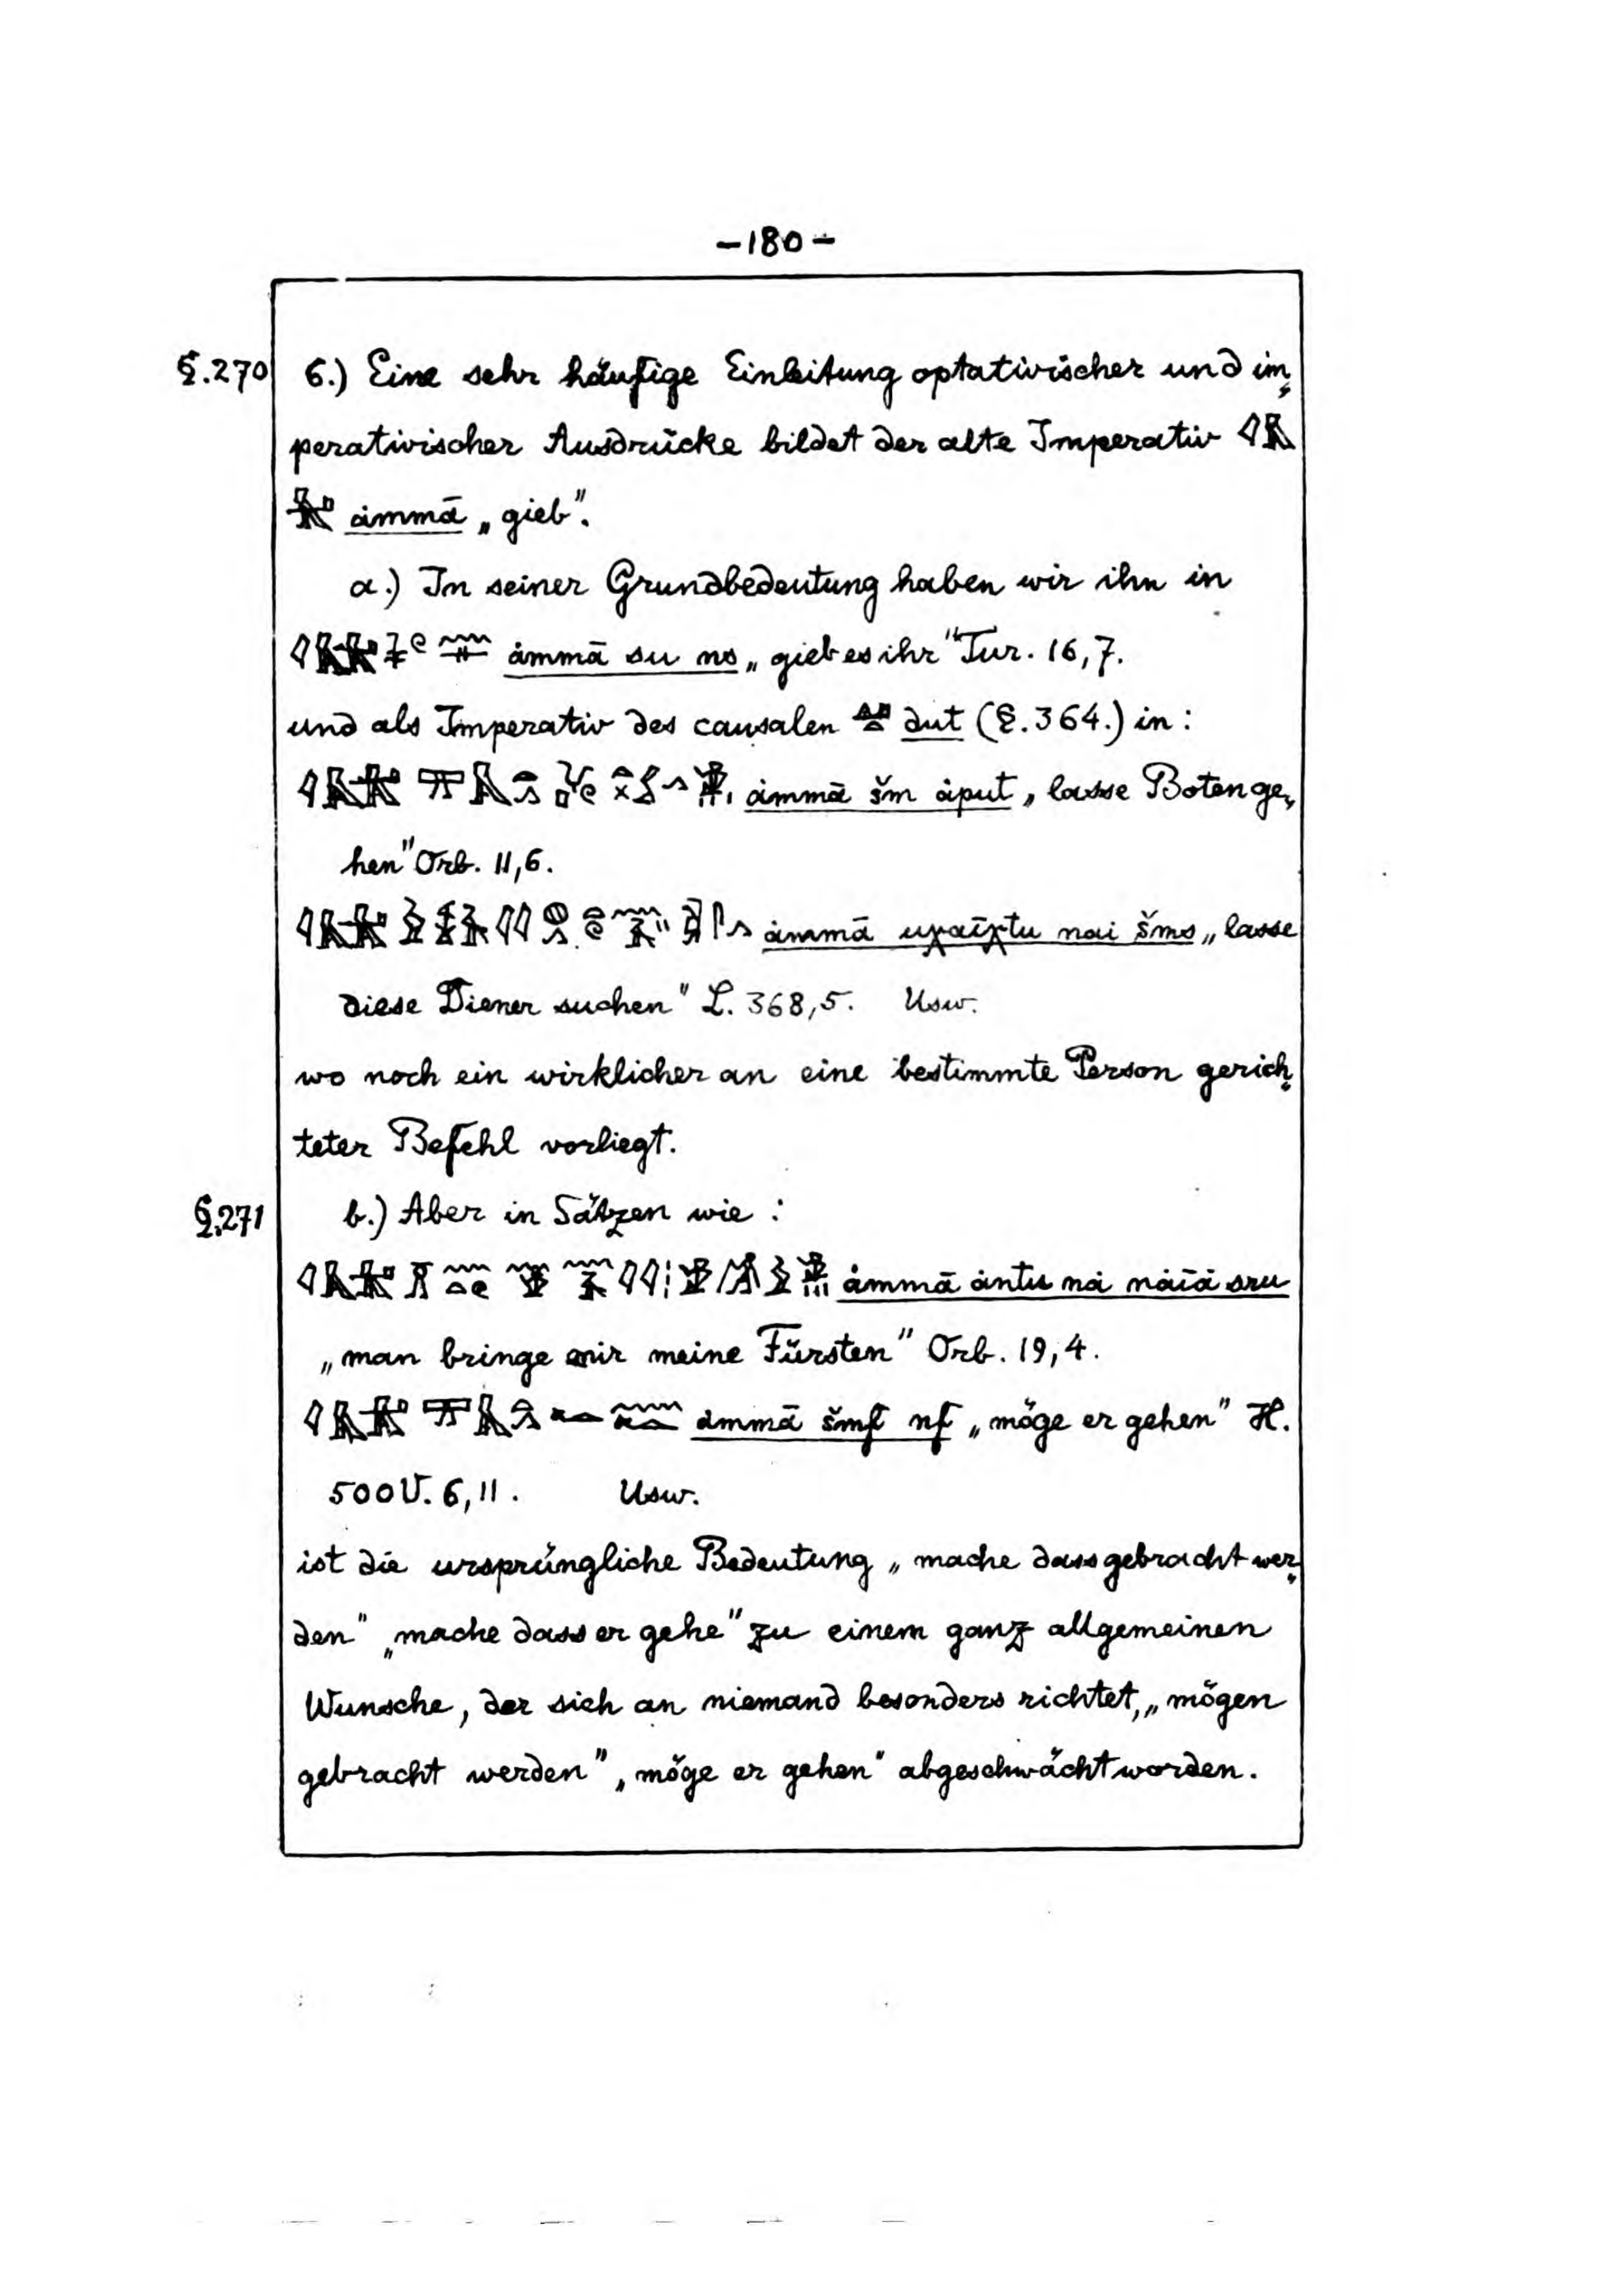 –180–
§.270 6.) Eine sehr häufige Einleitung optativischer und im„
perativischer Ausdrücke bildet der alte Imperativ
ȧmmā „gieb“.
a.) In seiner Grundbedeutung haben wir ihn in
ȧmmā su ns „gieb es ihr“ Tur. 16,7.
und als Imperativ des causalen dut (§.364.) in:
ȧmmā šm ȧput „lasse Boten ge„
hen“ Orb. 11,6.
ȧmmā uχaiχtu nai šms „lasse
diese Diener suchen“ L. 368,5. Usw.
wo noch ein wirklicher an eine bestimmte Person gerich„
teter Befehl vorliegt.
§.271 b.) Aber in Sätzen wie:
ȧmmā ȧntu nȧ nȧiȧ sru
„man bringe mir meine Fürsten“ Orb. 19,4.
ȧmmā šmf nf „möge er gehen“ H.
500 V. 6,11. Usw.
ist die ursprüngliche Bedeutung „mache dass gebracht wer„
den“ „mache dass er gehe“ zu einem ganz allgemeinen
Wunsche, der sich an niemand besonders richtet, „mögen
gebracht werden“, „möge er gehen“ abgeschwächt worden.